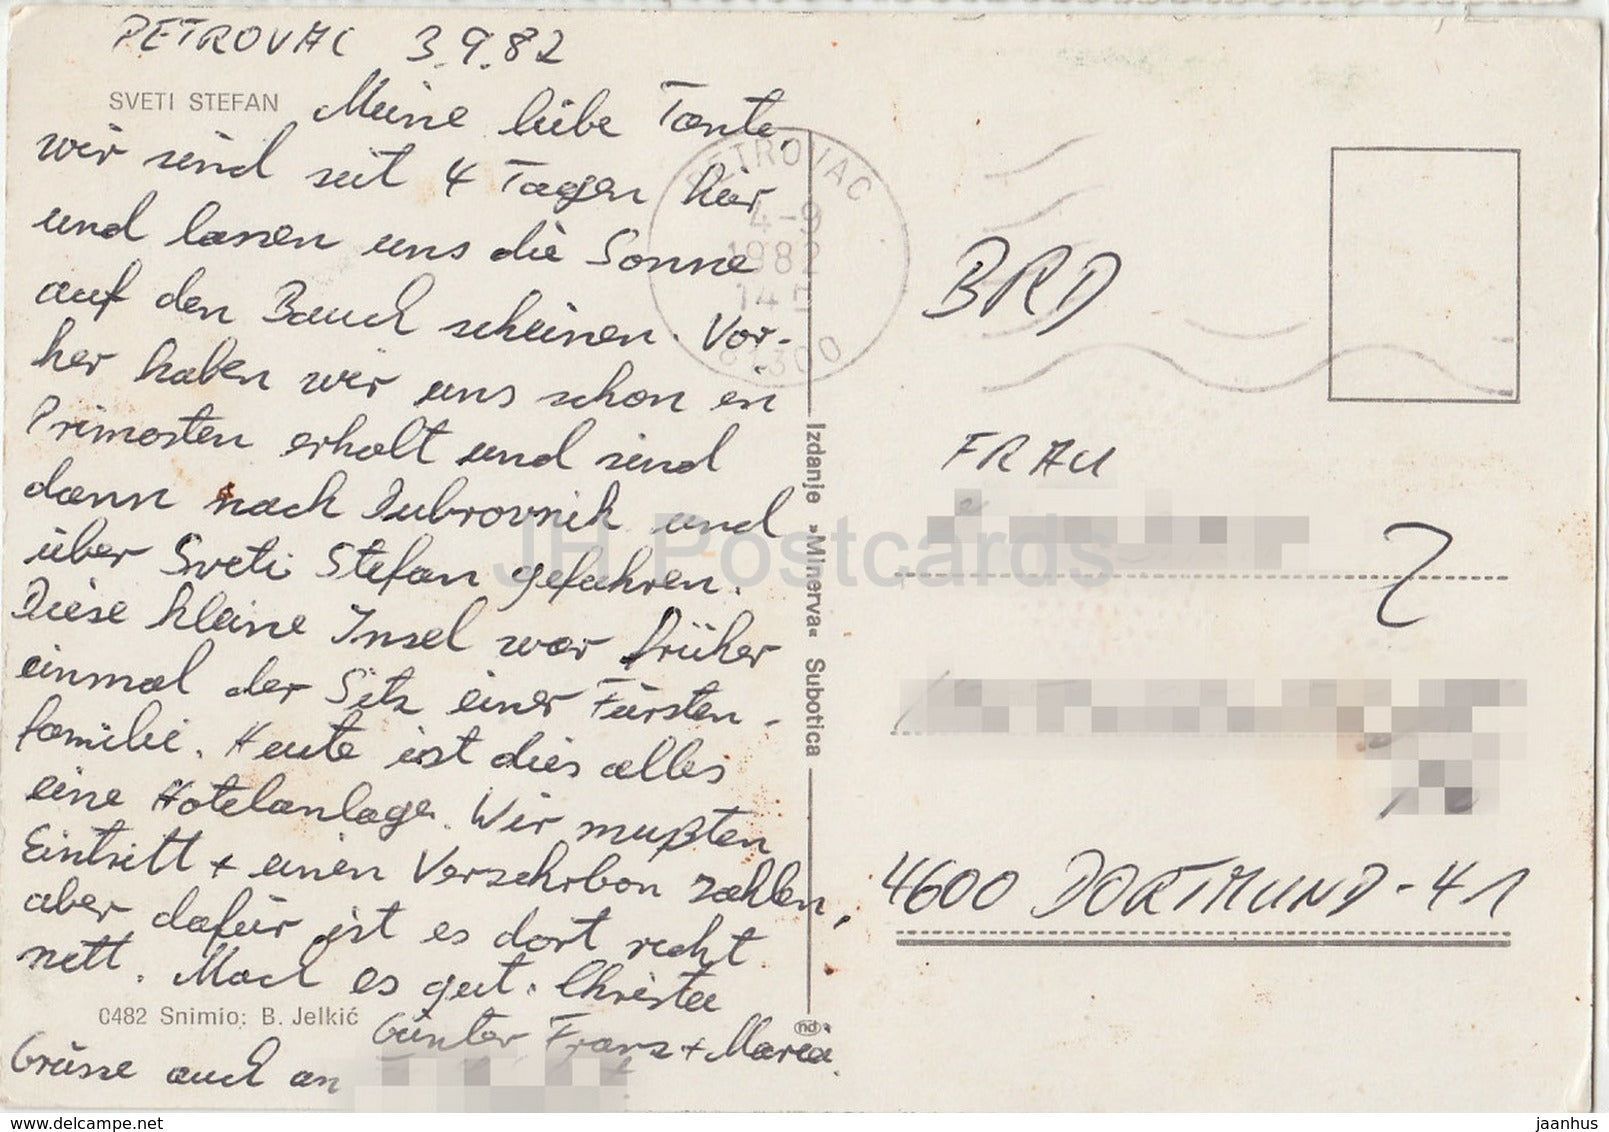 PETROVAC 3.9.82
SVETI STEFAN
Meine liebe Tante,
wir sind seit 4 Tagen hier
und lassen uns die Sonne
auf den Bauch scheinen. Vor-
her haben wir uns schon in
Primosten erholt und sind
dann nach Dubrovnik und
über Sveti Stefan gefahren.
Diese kleine Insel war früher
einmal der Sitz einer Fürsten-
familie. Heute ist dies alles
eine Hotelanlage. Wir mußten
Eintritt + einen Verzehrbon zahlen,
aber dafür ist es dort recht
nett. Mach es gut. Christa
Günter Franz + Maria.
Grüsse auch an
0482 Snimio: B. Jelkić
PETROVAC
4-9
1982
14
81300
Izdanje »Minerva« Subotica
nd
BRD
FRAU
4600 DORTMUND-41
JH Postcards
www.delcampe.net
jaanhus